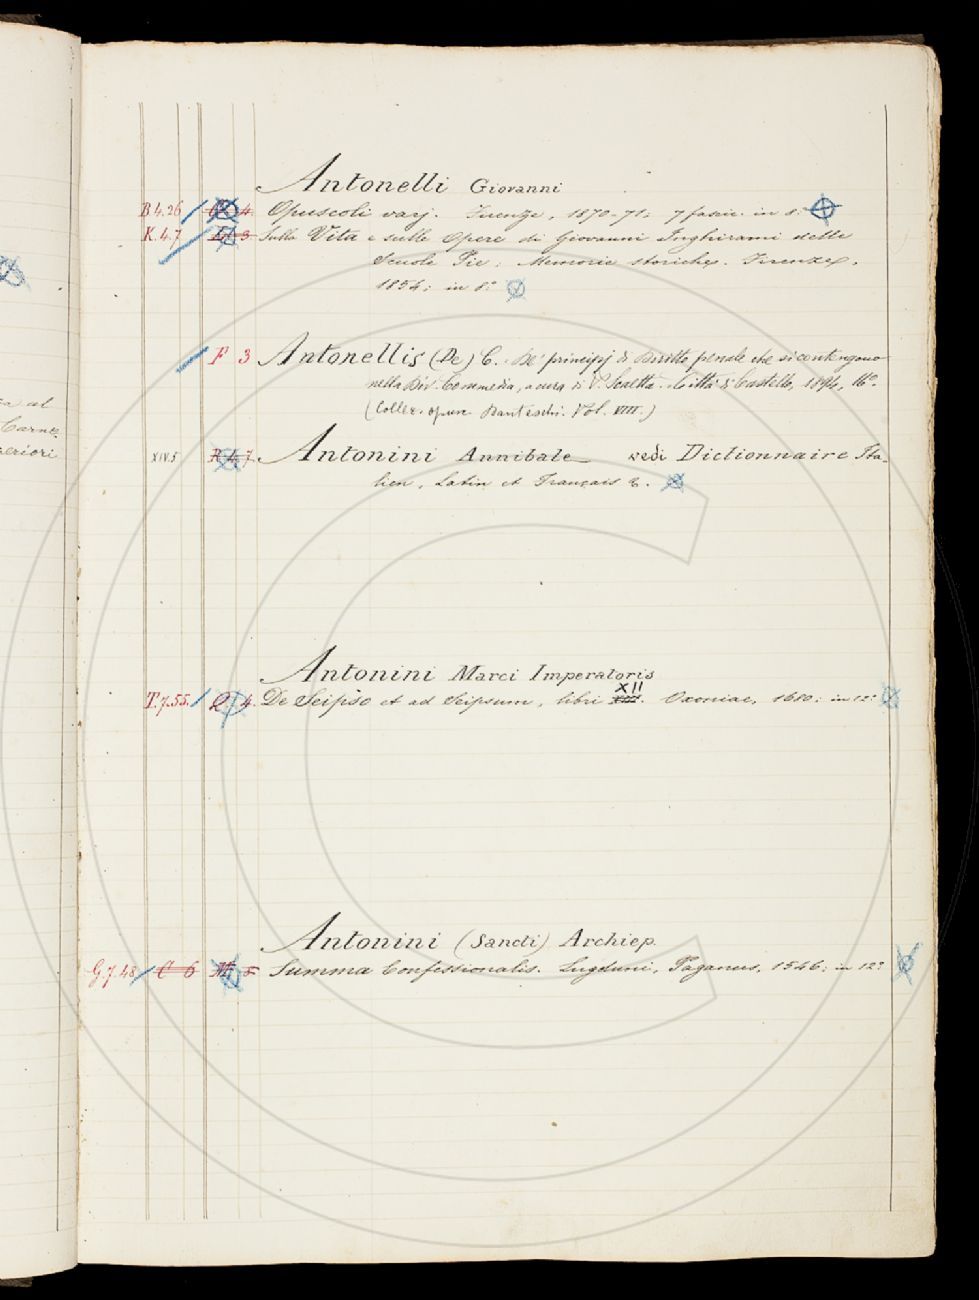 Antonelli Giovanni
B 4.26 4. Opuscoli varj. Firenze, 1870-71: 7 fasic. in 8.
K. 4.7 3 Sulla Vita e sulle Opere di Giovanni Inghirami delle
Scuole Pie. Memorie storiche. Firenze,
1854: in 8.º
F 3 Antonellis (De) C. De' principj di Diritto penale che si contengono
nella Div. Commedia, a cura di Città di Castello, 1894, 16º.
(Collez. opusc. Danteschi. Vol. VIII.)
XIV.5 7. Antonini Annibale vedi Dictionnaire Ita-
lien, Latin et Français &.
Antonini Marci Imperatoris
XII
T.7.55. 4. De Seipso et ad Seipsum, libri Oxoniae, 1680: in 12º
Antonini (Sancti) Archiep.
G.7.48 C 6 5 Summa Confessionalis. Lugduni, Paganus, 1546: in 12º
ra al
Carne
eriori